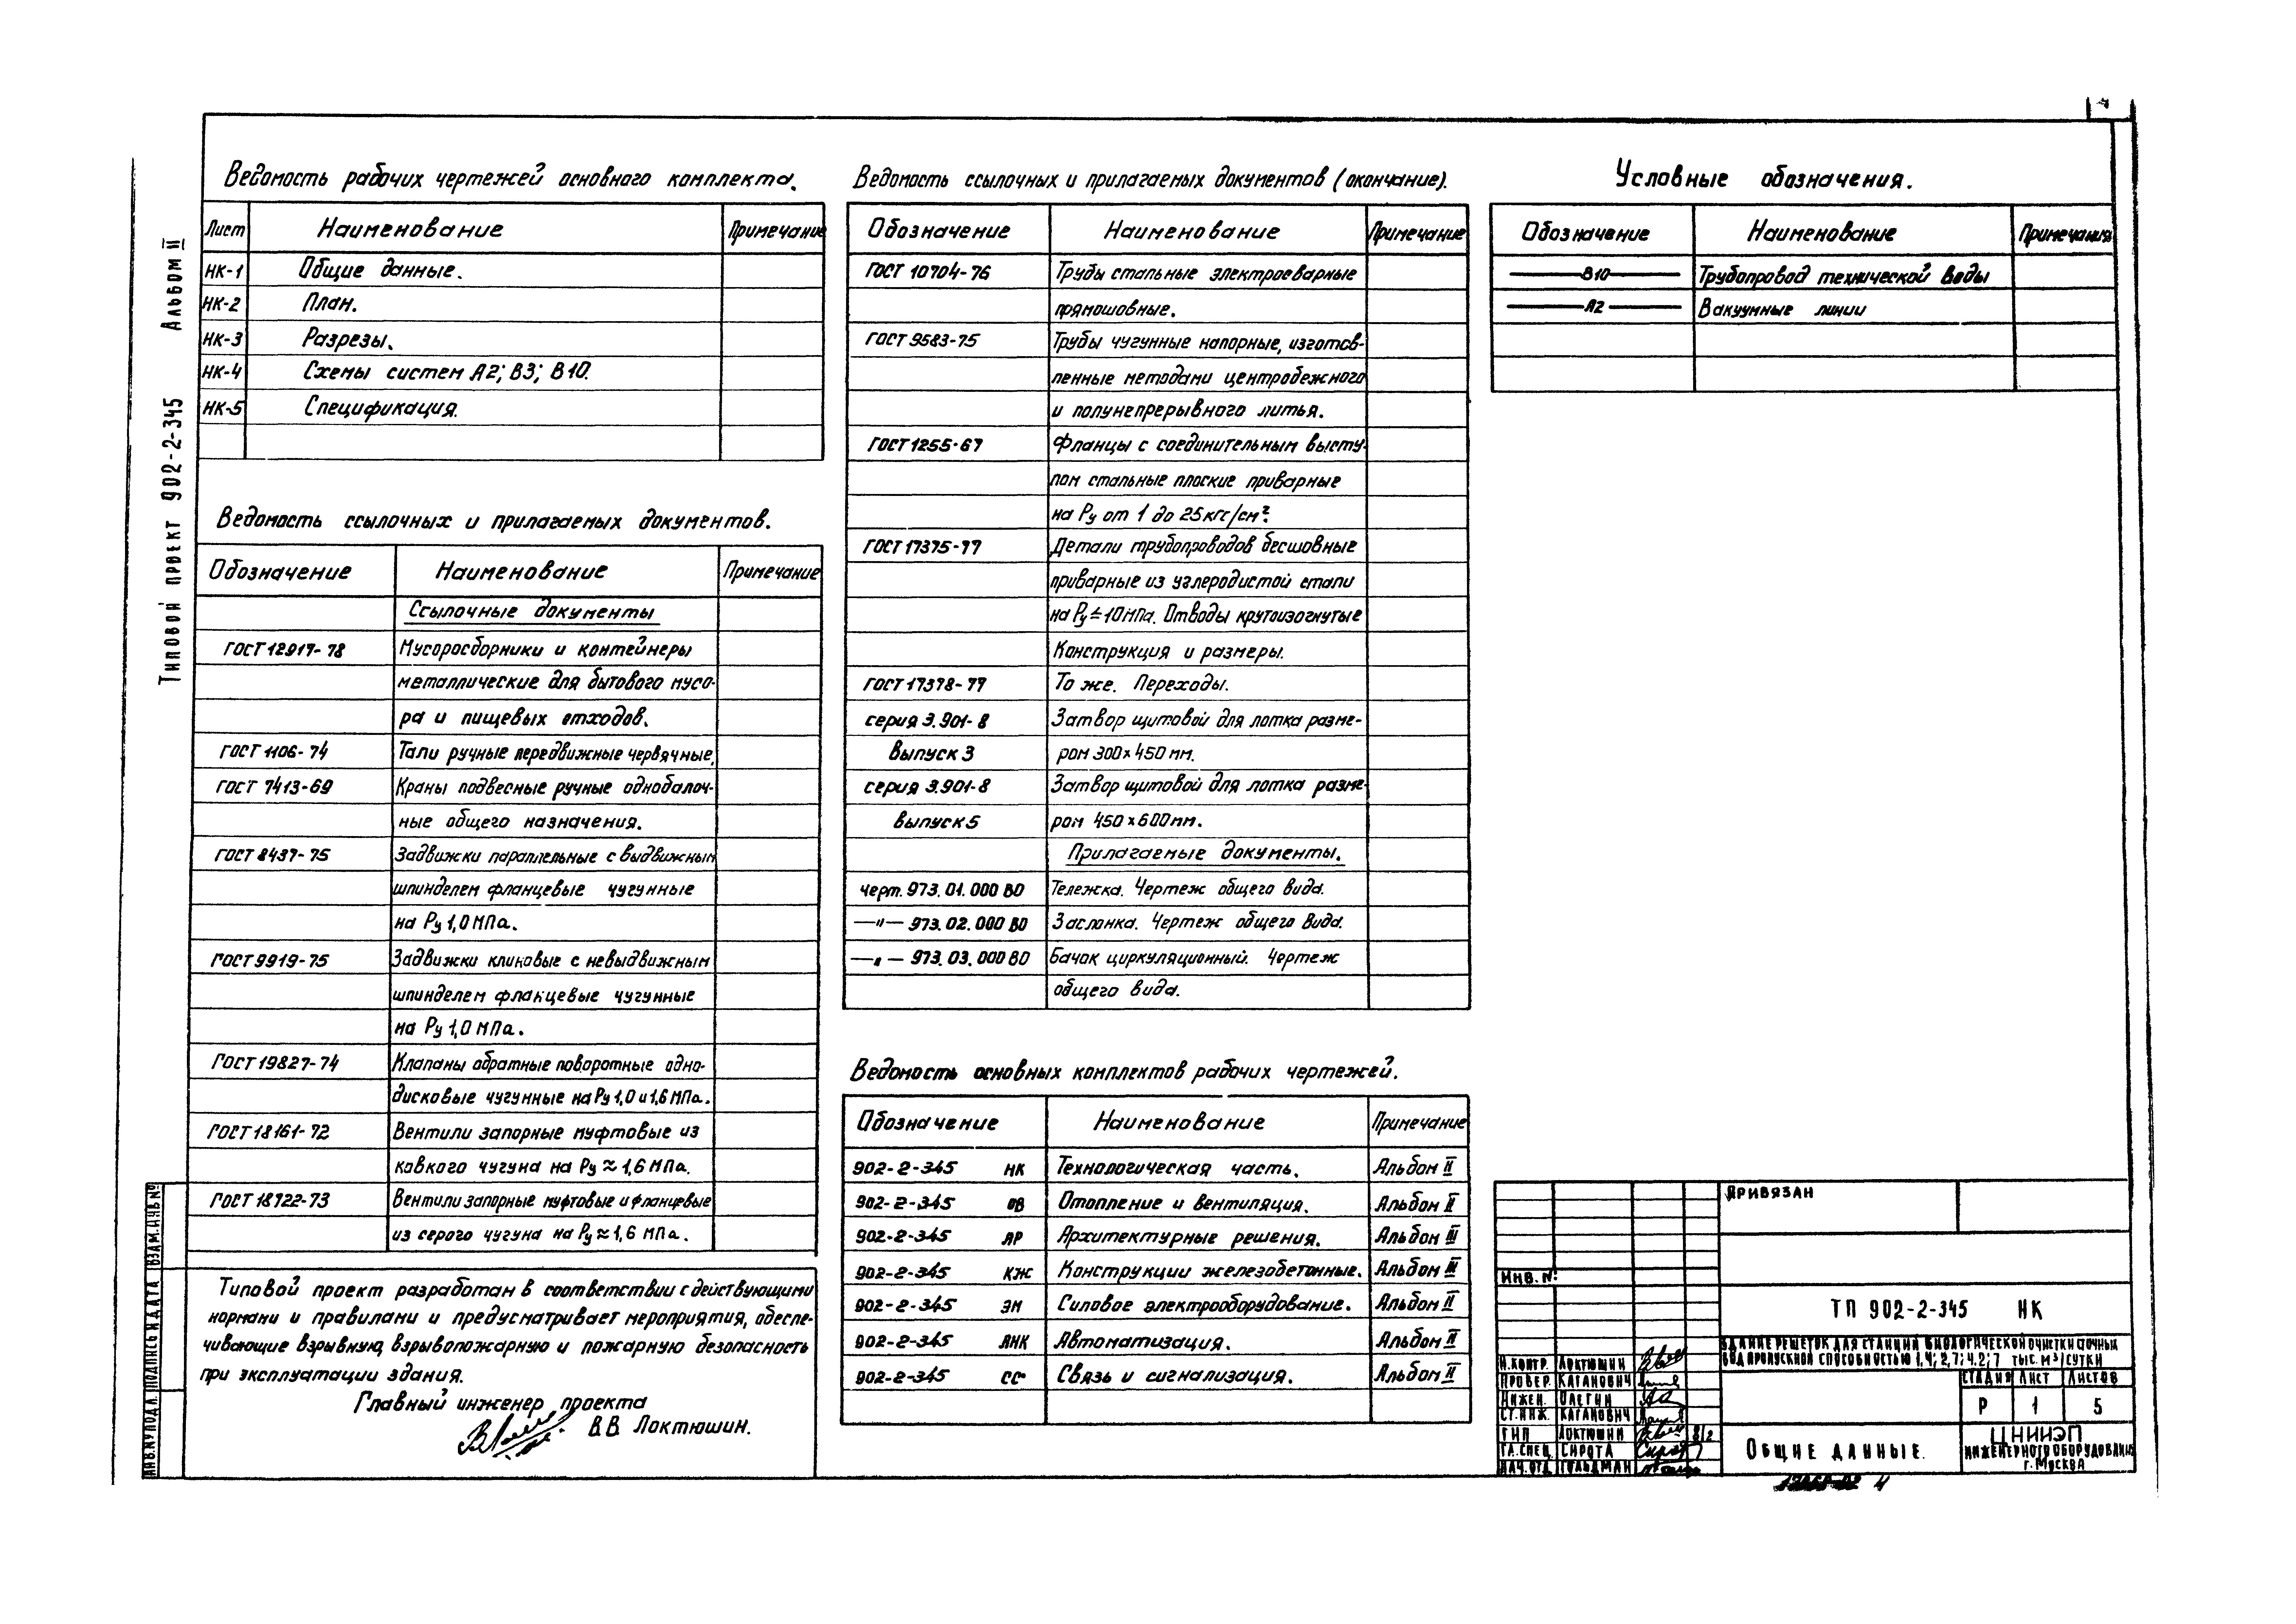 4
Альбом II
Типовой проект 902-2-345
Ведомость рабочих чертежей основного комплекта.
Лист Наименование Примечание
НК-1 Общие данные.
НК-2 План.
НК-3 Разрезы.
НК-4 Схемы систем А2; В3; В10.
НК-5 Спецификация.
Ведомость ссылочных и прилагаемых документов.
Обозначение Наименование Примечание
Ссылочные документы
ГОСТ 12917-78 Мусоросборники и контейнеры
металлические для бытового мусо-
ра и пищевых отходов.
ГОСТ 1106-74 Тали ручные передвижные червячные.
ГОСТ 7413-69 Краны подвесные ручные однобалоч-
ные общего назначения.
ГОСТ 8437-75 Задвижки параллельные с выдвижным
шпинделем фланцевые чугунные
на Ру 1,0 МПа.
ГОСТ 9919-75 Задвижки клиновые с невыдвижным
шпинделем фланцевые чугунные
на Ру 1,0 МПа.
ГОСТ 19827-74 Клапаны обратные поворотные одно-
дисковые чугунные на Ру 1,0 и 1,6 МПа.
ГОСТ 18161-72 Вентили запорные муфтовые из
ковкого чугуна на Ру ≈ 1,6 МПа.
ГОСТ 18722-73 Вентили запорные муфтовые и фланцевые
из серого чугуна на Ру ≈ 1,6 МПа.
Типовой проект разработан в соответствии с действующими
нормами и правилами и предусматривает мероприятия, обеспе-
чивающие взрывную, взрывопожарную и пожарную безопасность
при эксплуатации здания.
Главный инженер проекта
В.В. Локтюшин.
Ведомость ссылочных и прилагаемых документов (окончание).
Обозначение Наименование Примечание
ГОСТ 10704-76 Трубы стальные электросварные
прямошовные.
ГОСТ 9583-75 Трубы чугунные напорные, изготов-
ленные методами центробежного
и полунепрерывного литья.
ГОСТ 1255-67 Фланцы с соединительным высту-
пом стальные плоские приварные
на Ру от 1 до 25 кгс/см².
ГОСТ 17375-77 Детали трубопроводов бесшовные
приварные из углеродистой стали
на Ру ≤ 10 МПа. Отводы крутоизогнутые
Конструкция и размеры.
ГОСТ 17378-77 То же. Переходы.
серия 3.901-8 Затвор щитовой для лотка разме-
Выпуск 3 ром 300×450 мм.
серия 3.901-8 Затвор щитовой для лотка разме-
выпуск 5 ром 450×600 мм.
Прилагаемые документы.
черт. 973.01.000 ВО Тележка. Чертеж общего вида.
—"— 973.02.000 ВО Заслонка. Чертеж общего вида.
—"— 973.03.000 ВО Бачок циркуляционный. Чертеж
общего вида.
Ведомость основных комплектов рабочих чертежей.
Обозначение Наименование Примечание
902-2-345 НК Технологическая часть. Альбом II
902-2-345 ОВ Отопление и вентиляция. Альбом II
902-2-345 АР Архитектурные решения. Альбом III
902-2-345 КЖ Конструкции железобетонные. Альбом III
902-2-345 ЭМ Силовое электрооборудование. Альбом II
902-2-345 АНК Автоматизация. Альбом II
902-2-345 СС Связь и сигнализация. Альбом II
Условные обозначения.
Обозначение Наименование Примечания
В10 Трубопровод технической воды
А2 Вакуумные линии
Привязан
Инв. №
ТП 902-2-345 НК
Здание решеток для станций биологической очистки сточных
вод пропускной способностью 1,4; 2,7; 4,2; 7 тыс. м³/сутки
Н.контр. Локтюшин
Провер. Каганович
Инжен.
Ст.инж. Каганович
ГИП Локтюшин
Гл.спец. Сирота
Нач.отд. Гольдман
Стадия Лист Листов
Р 1 5
Общие данные.
ЦНИИЭП
инженерного оборудования
г. Москва
4
Инв.№ подл. Подпись и дата Взам.инв.№